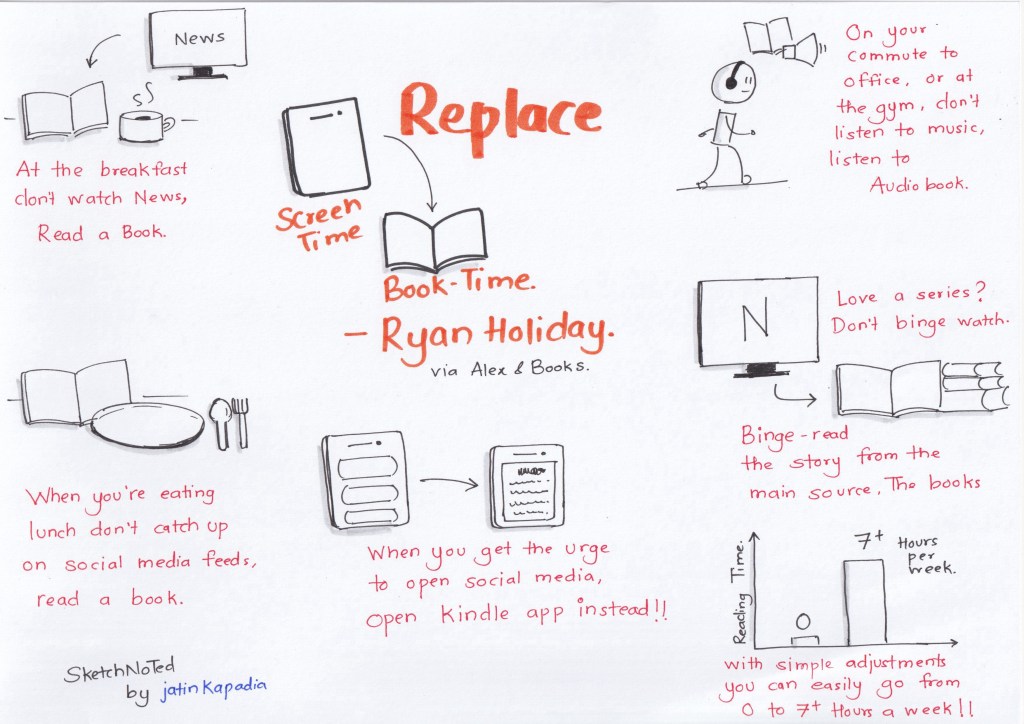 Replace
Screen
Time
Book-Time.
- Ryan Holiday.
via Alex & Books.
News
At the breakfast
don't watch News,
Read a Book.
On your
commute to
office, or at
the gym, don't
listen to music,
listen to
Audio book.
N
Love a series?
Don't binge watch.
Binge-read
the story from the
main source, The books
When you're eating
lunch don't catch up
on social media feeds,
read a book.
When you get the urge
to open social media,
open kindle app instead!!
Reading Time.
0
7+ Hours
per
week.
with simple adjustments
you can easily go from
0 to 7+ Hours a week!!
SketchNoTed
by jatin kapadia